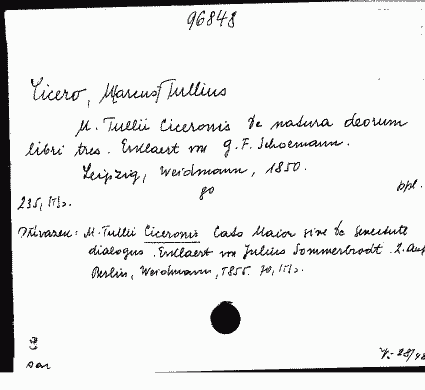 96848
Cicero, [Marcus] Tullius
M. Tullii Ciceronis De natura deorum
libri tres. Erklaert von G. F. Schoemann.
Leipzig, Weidmann, 1850.
8o bpl.
235, [1] s.
M. Tullii Ciceronis Cato Maior sive De senectute
dialogus. Erklaert von Julius Sommerbrodt. 2. Aufl
Berlin, Weidmann, 1855. 70, [1] s.